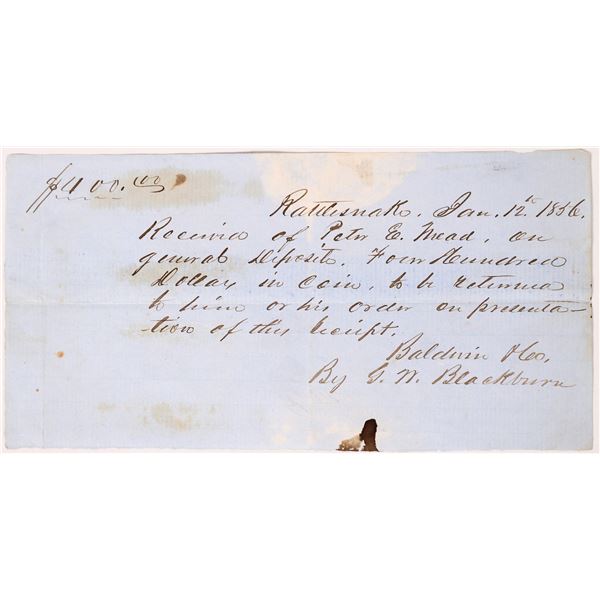 $400.00
Rattlesnake, Jan. 12th 1856.
Received of Peter E. Mead, on
general Deposite, Four Hundred
Dollars in Coin, to be returned
to him or his order on presenta-
tion of this receipt.
Baldwin & Co.
By G. W. Blackburn